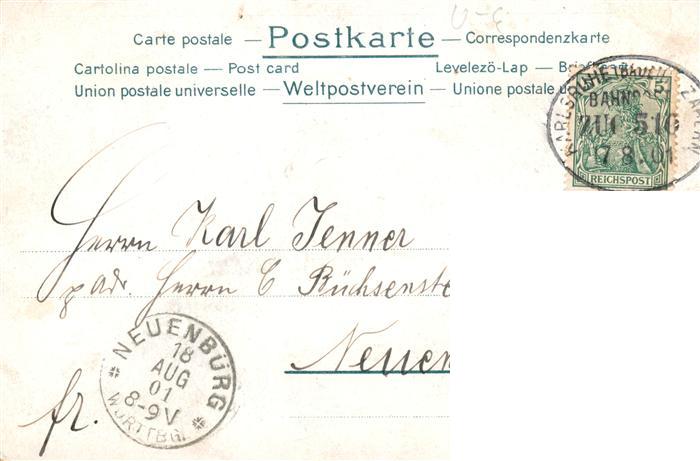 U-G
Carte postale — Postkarte — Correspondenzkarte
Cartolina postale — Post card Levelezö-Lap —
Union postale universelle — Weltpostverein — Unione postale
BAHNPOST
ZUG 516
17 8.01
REICHSPOST
Herrn Karl Jenner
p adr. Herrn C Büchsenste
Neuen
NEUENBÜRG
18
AUG
01
8-9 V
WÜRTTBG.
fr.